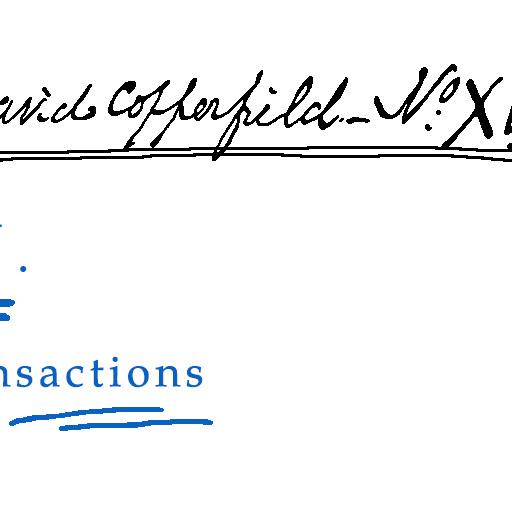 avid Copperfield._ No. X
.
nsactions